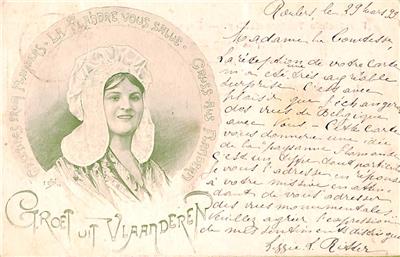 GREETINGS FROM FLANDERS · LA FLANDRE VOUS SALUE · GRUSS AUS FLANDERN
GROET UIT VLAANDEREN
Roulers le 29 Mars 99
Madame la Comtesse,
La réception de votre Carte
m'a été très agréable
surprise. C'est avec
plaisir que j'échangerai
des vues de Belgique
avec vous. Cette Carte
vous donnera une idée
de la "paysanne flamande"
C'est un type dont
Je vous l'adresse en réponse
à votre missive en atten-
dant de vous adresser
des vues monumentales.
Veuillez agréer l'expression
de mes sentiments distingués
Ritter